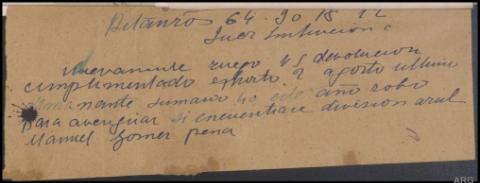 Betanzos 64-30 18 12
Juez Instruccion =
Nuevamente ruego VS devolucion
cumplimentado exhorto 2 agosto ultimo
dimanante sumario 40 este año robo
para averiguar si encuentrase division azul
Manuel Gomez pena
ARG